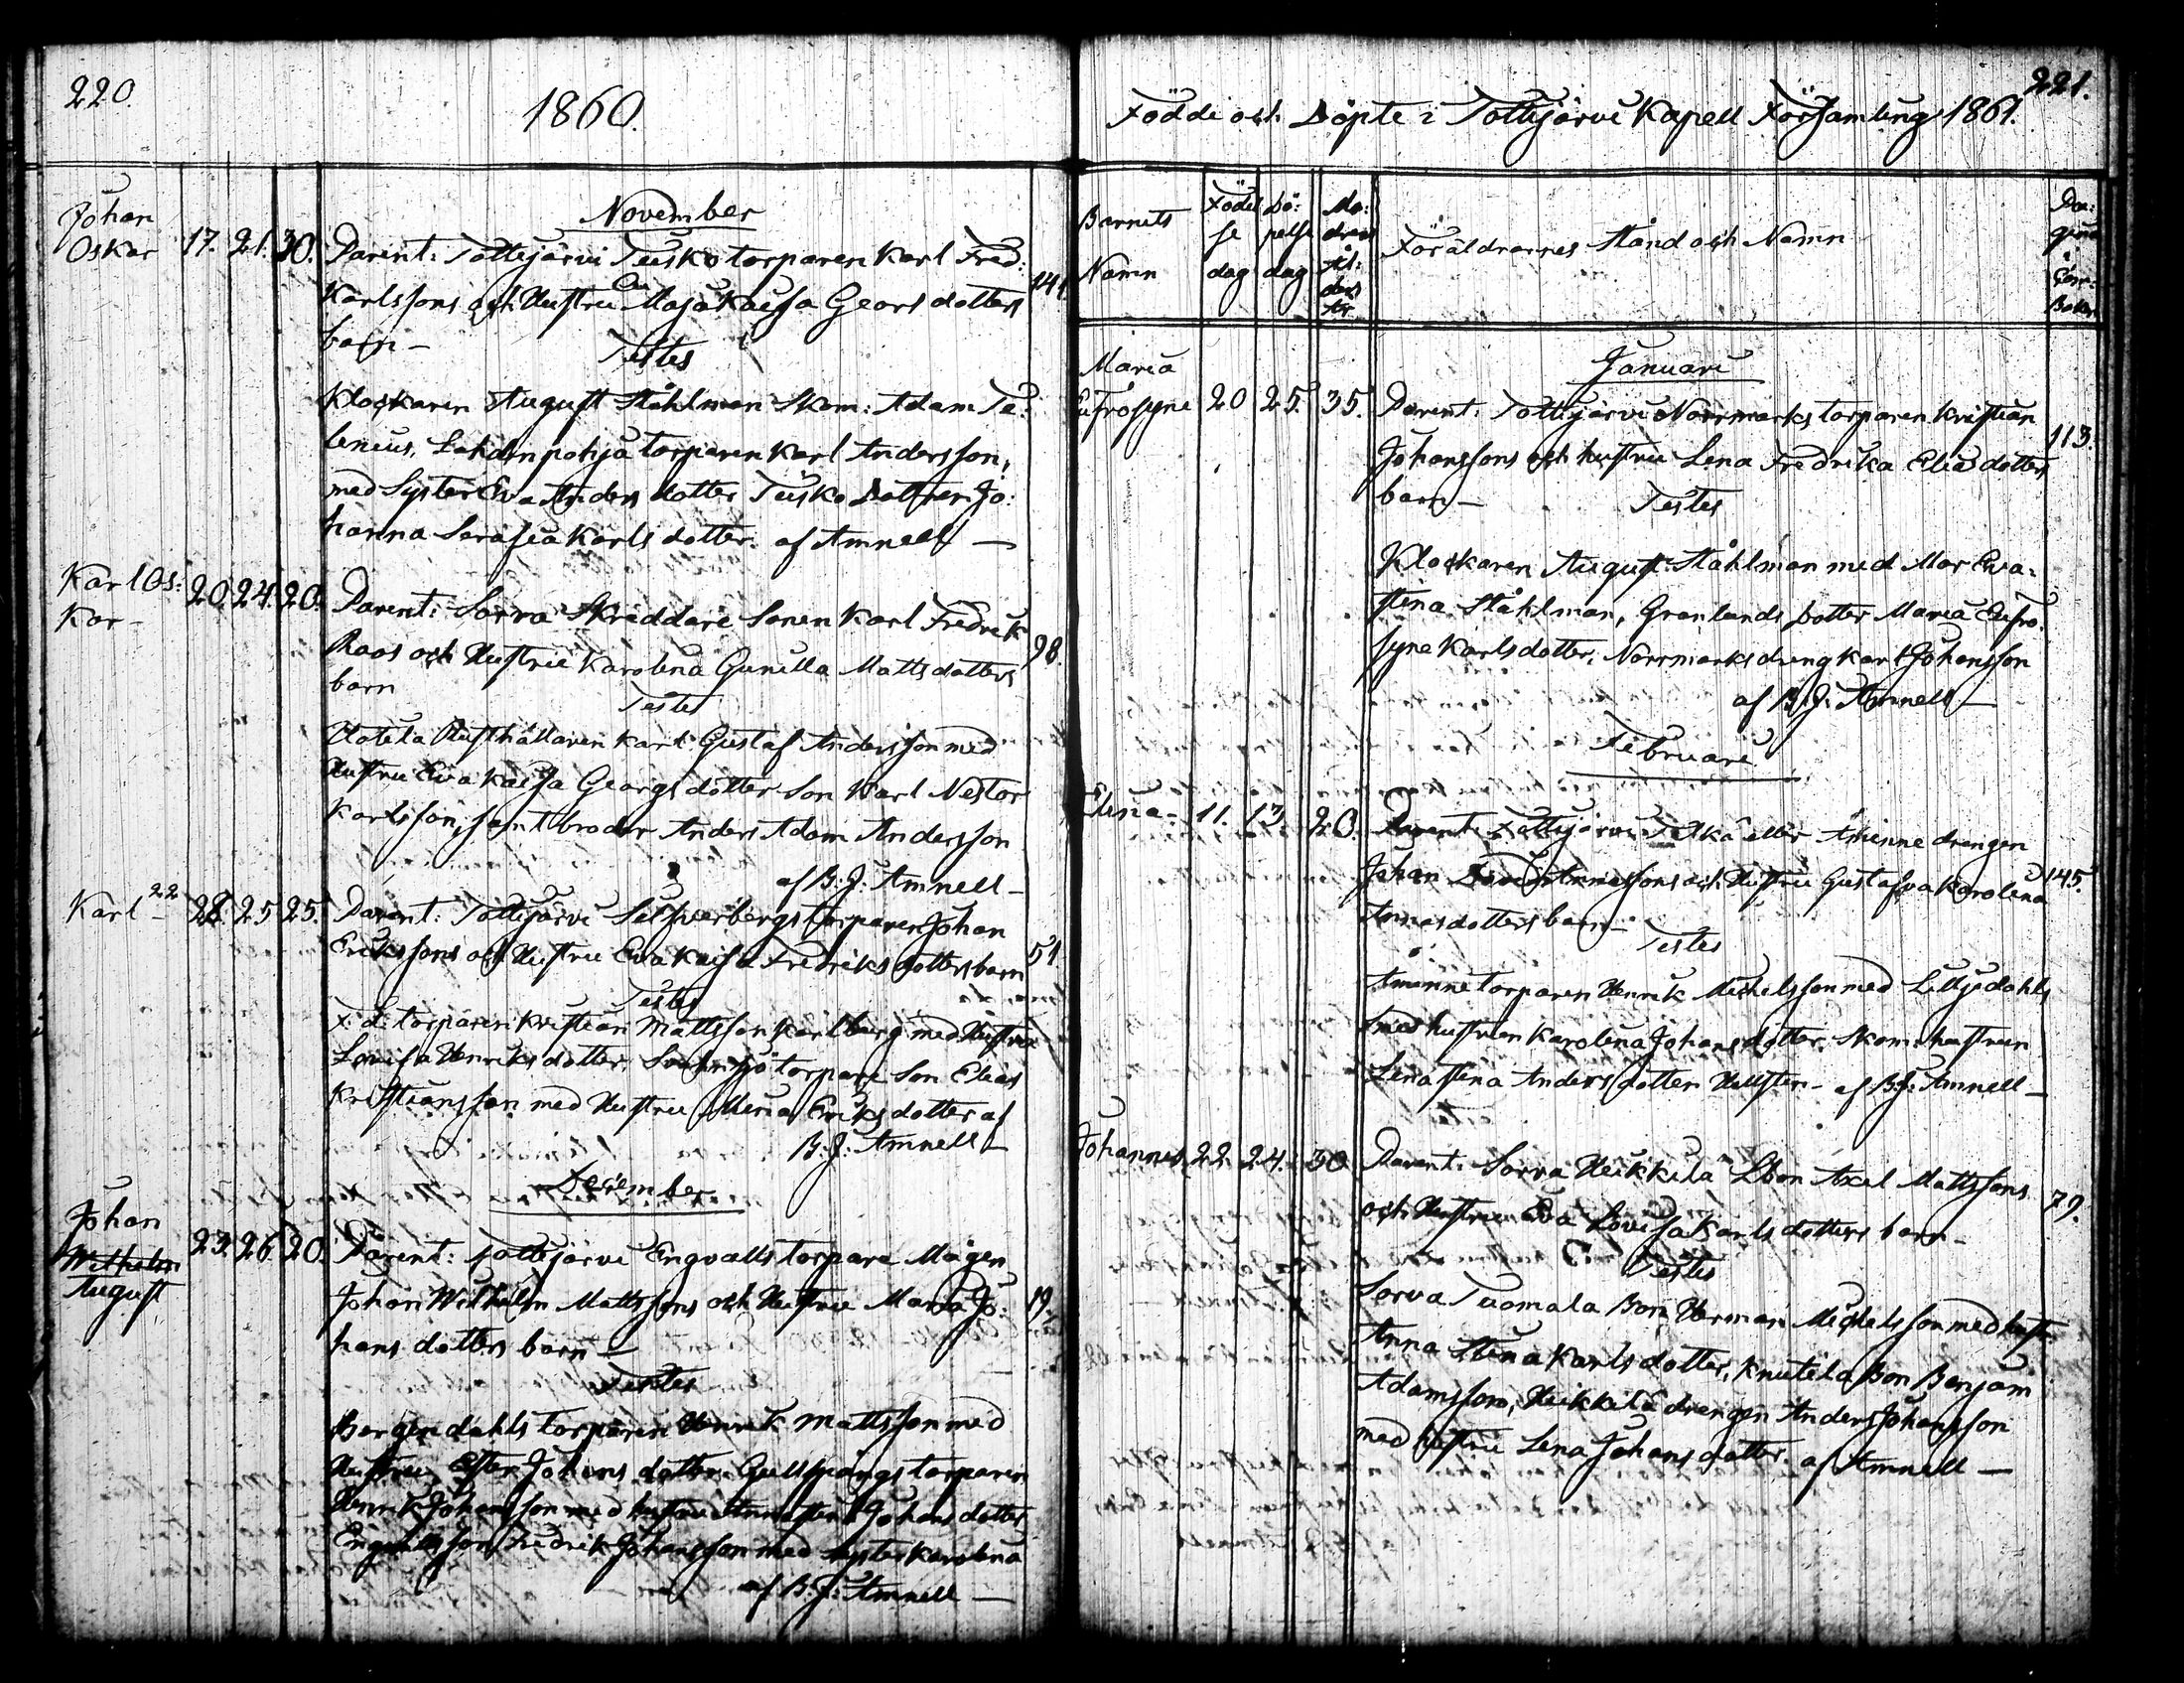 220.
1860.
November
Johan
Oskar 17. 21. 30. Parent: Tottijärvi Tuisko torparen Karl Fred:
Karlssons och Hustru Maja Kaisa Georsdotters 141.
barn —
Testes
Klockaren August Ståhlman Skom: Adam Te-
lenius, Lahdinpohja torparen Karl Andersson,
med Syster Eva Anders dotter Tuisko Dottren Jo:
hanna Serafia Karls dotter. af Amnell —
Karl Os:
kar — 20. 24. 20. Parent: Sorva Skräddare Sonen Karl Fredrik
Roos och Hustru Karolina Gunilla Matts dotters 98.
barn
Testes
Uotila Rusthållaren Karl Gustaf Andersson med
Hustru Eva Kaisa Georgs dotter Son Karl Nestor
Karlsson, samt broder Anders Adam Andersson
af B. J: Amnell —
Karl — 22 28. 25 25. Parent: Tottijärvi Silfverbergs torparen Johan
Erikssons och Hustru Eva Kaisa Fredriks dotters barn 51
Testes
F. d. torparen Kristian Mattsson Karlberg med Hustru
Lovisa Henriks dotter, torpare Son Elias
Kristiansson med Hustru Maria Eriks dotter af
B. J: Amnell —
December
Johan
Wilhelm
August 23. 26. 20. Parent: Tottijärvi Engvalls torpare Mågen
Johan Wilhelm Mattssons och Hustru Maria Jo: 19.
hans dotters barn —
Testes
Bergendahls torparen Henrik Mattsson med
Hustru Ester Johans dotter. Gullspångs torparen
Henrik Johansson med hustru Anna Stina Johans dotter
Engvalls Son Fredrik Johansson med syster Karolina
af B. J: Amnell —
221.
Födde och Döpte i Tottijärvi Kapell Församling 1861.
Barnets Namn
Födel se dag
Dö: pelse dag
Mo: drens Ål: ders år
Föräldrarnes Stånd och Namn
Pa: gina i Com: Boken
Januari
Maria
Eufrosyne 20 25. 35. Parent: Tottijärvi Norrmarks torparen Kristian
Johanssons och hustru Lena Fredrika Elias dotters 113.
barn —
Testes
Klockaren August Ståhlman med Mor Eva
Stina Ståhlman, Granlunds Dotter Maria Eufro:
syne Karls dotter, Norrmarks dreng Karl Johansson
af B. J: Amnell —
Februari
Elina — 11. 13. 20. Parent: Tottijärvi eller Åminne drengen
Johan och Hustru Gustafva Karolina 145.
dotters barn —
Testes
Åminne torparen Henrik Michelsson med Liljedahls
smeds hustrun Karolina Johans dotter, Skom: hustrun
Lena Stina Anders dotter Hellsten — af B. J: Amnell —
Johannes 22. 24. 30 Parent: Sorva Heikkilä Bon Axel Mattssons
och Hustru Eva Lovisa Karls dotters barn — 79.
Testes
Sorva Tuomala Bon Herman Michelsson med hust:
Anna Stina Karls dotter, Knutila Bon Benjam
Adamsson, Heikkilä drengen Anders Johansson
med hustru Lena Johans dotter. af Amnell —